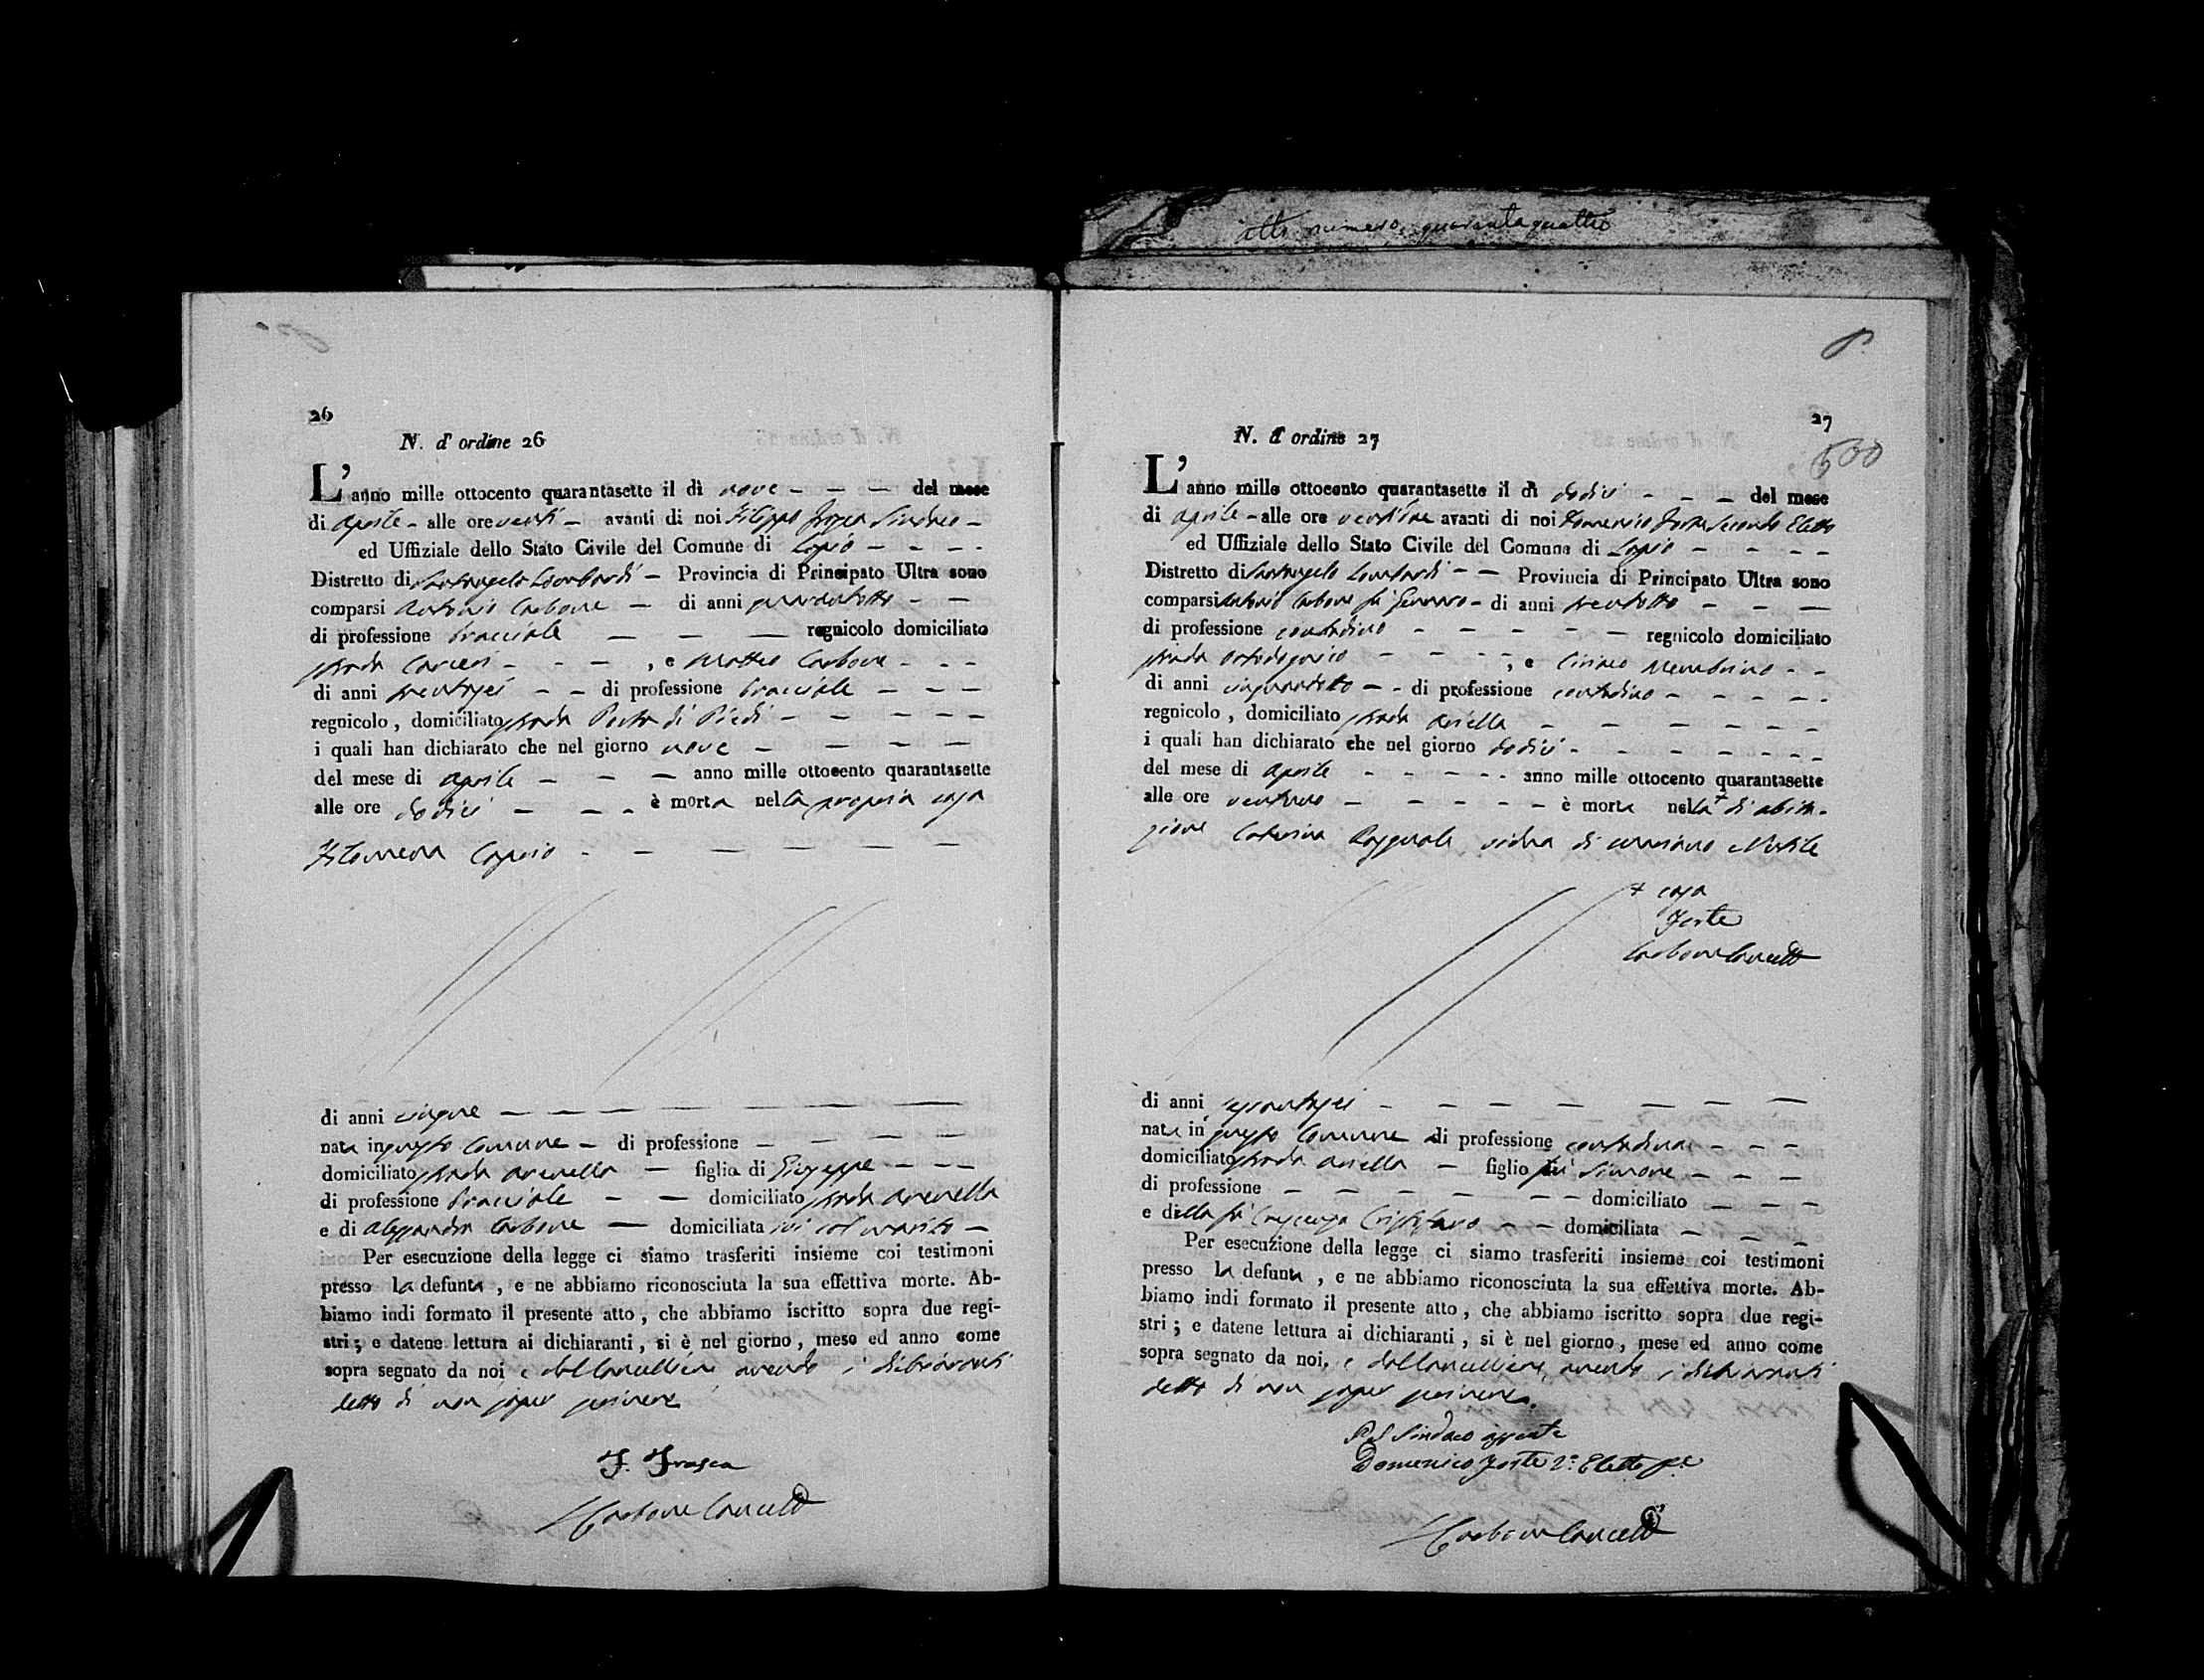 atto numero quarantaquattro
26
N. d' ordine 26
L' anno mille ottocento quarantasette il dì nove - - - del mese
di Aprile - alle ore venti - avanti di noi Filippo Frasca Sindaco -
ed Uffiziale dello Stato Civile del Comune di Lapio - - - -
Distretto di Santangelo Lombardi - Provincia di Principato Ultra sono
comparsi Antonio Carbone - di anni quarantotto - -
di professione bracciale - - - regnicolo domiciliato
strada Carceri - - - , e Matteo Carbone - - -
di anni trentasei - - di professione bracciale - - -
regnicolo, domiciliato strada Porta di Piedi - - - - -
i quali han dichiarato che nel giorno nove - - - -
del mese di Aprile - - - anno mille ottocento quarantasette
alle ore dodici - - - è morta nella propria casa
Filomena Caprio - - - - - -
di anni cinque - - - - - - -
nata in questo Comune - di professione - - - -
domiciliato strada Arenella - figlia di Giuseppe - - -
di professione bracciale - - domiciliato strada Arenella
e di Alessandra Carbone - domiciliata ivi col marito -
Per esecuzione della legge ci siamo trasferiti insieme coi testimoni
presso la defunta, e ne abbiamo riconosciuta la sua effettiva morte. Ab-
biamo indi formato il presente atto, che abbiamo iscritto sopra due regi-
stri; e datene lettura ai dichiaranti, si è nel giorno, mese ed anno come
sopra segnato da noi e dal Cancelliere avendo i dichiaranti
detto di non saper scrivere
F. Frasca
Carbone Canc
27
500
N. d' ordine 27
L' anno mille ottocento quarantasette il dì dodici - - - del mese
di Aprile - alle ore ventitre avanti di noi Domenico Forte Secondo Eletto
ed Uffiziale dello Stato Civile del Comune di Lapio - - - -
Distretto di Santangelo Lombardi - - Provincia di Principato Ultra sono
comparsi Antonio Carbone fu Gennaro - di anni trentotto - - -
di professione contadino - - - - - regnicolo domiciliato
strada - - - , e Ciriaco Membrino - -
di anni cinquantotto - - di professione contadino - - - - -
regnicolo, domiciliato strada Ariella - - - - - -
i quali han dichiarato che nel giorno dodici - - - - - - -
del mese di Aprile - - - - - anno mille ottocento quarantasette
alle ore ventuno - - - - - è morta nella + di abita-
zione Caterina Pasquale vedova di
+ casa
Forte
Carbone Canc
di anni sessantasei - - - - - - -
nata in questo Comune di professione contadina - - -
domiciliato strada Ariella - figlia fu Simone - - -
di professione - - - - - - domiciliato - - -
e della fu Crescenza Cristofano - - domiciliata - - -
Per esecuzione della legge ci siamo trasferiti insieme coi testimoni
presso la defunta, e ne abbiamo riconosciuta la sua effettiva morte. Ab-
biamo indi formato il presente atto, che abbiamo iscritto sopra due regi-
stri; e datene lettura ai dichiaranti, si è nel giorno, mese ed anno come
sopra segnato da noi, e dal Cancelliere, avendo i dichiaranti
detto di non saper scrivere.
Pel Sindaco assente
Domenico Forte 2° Eletto
Carbone Canc